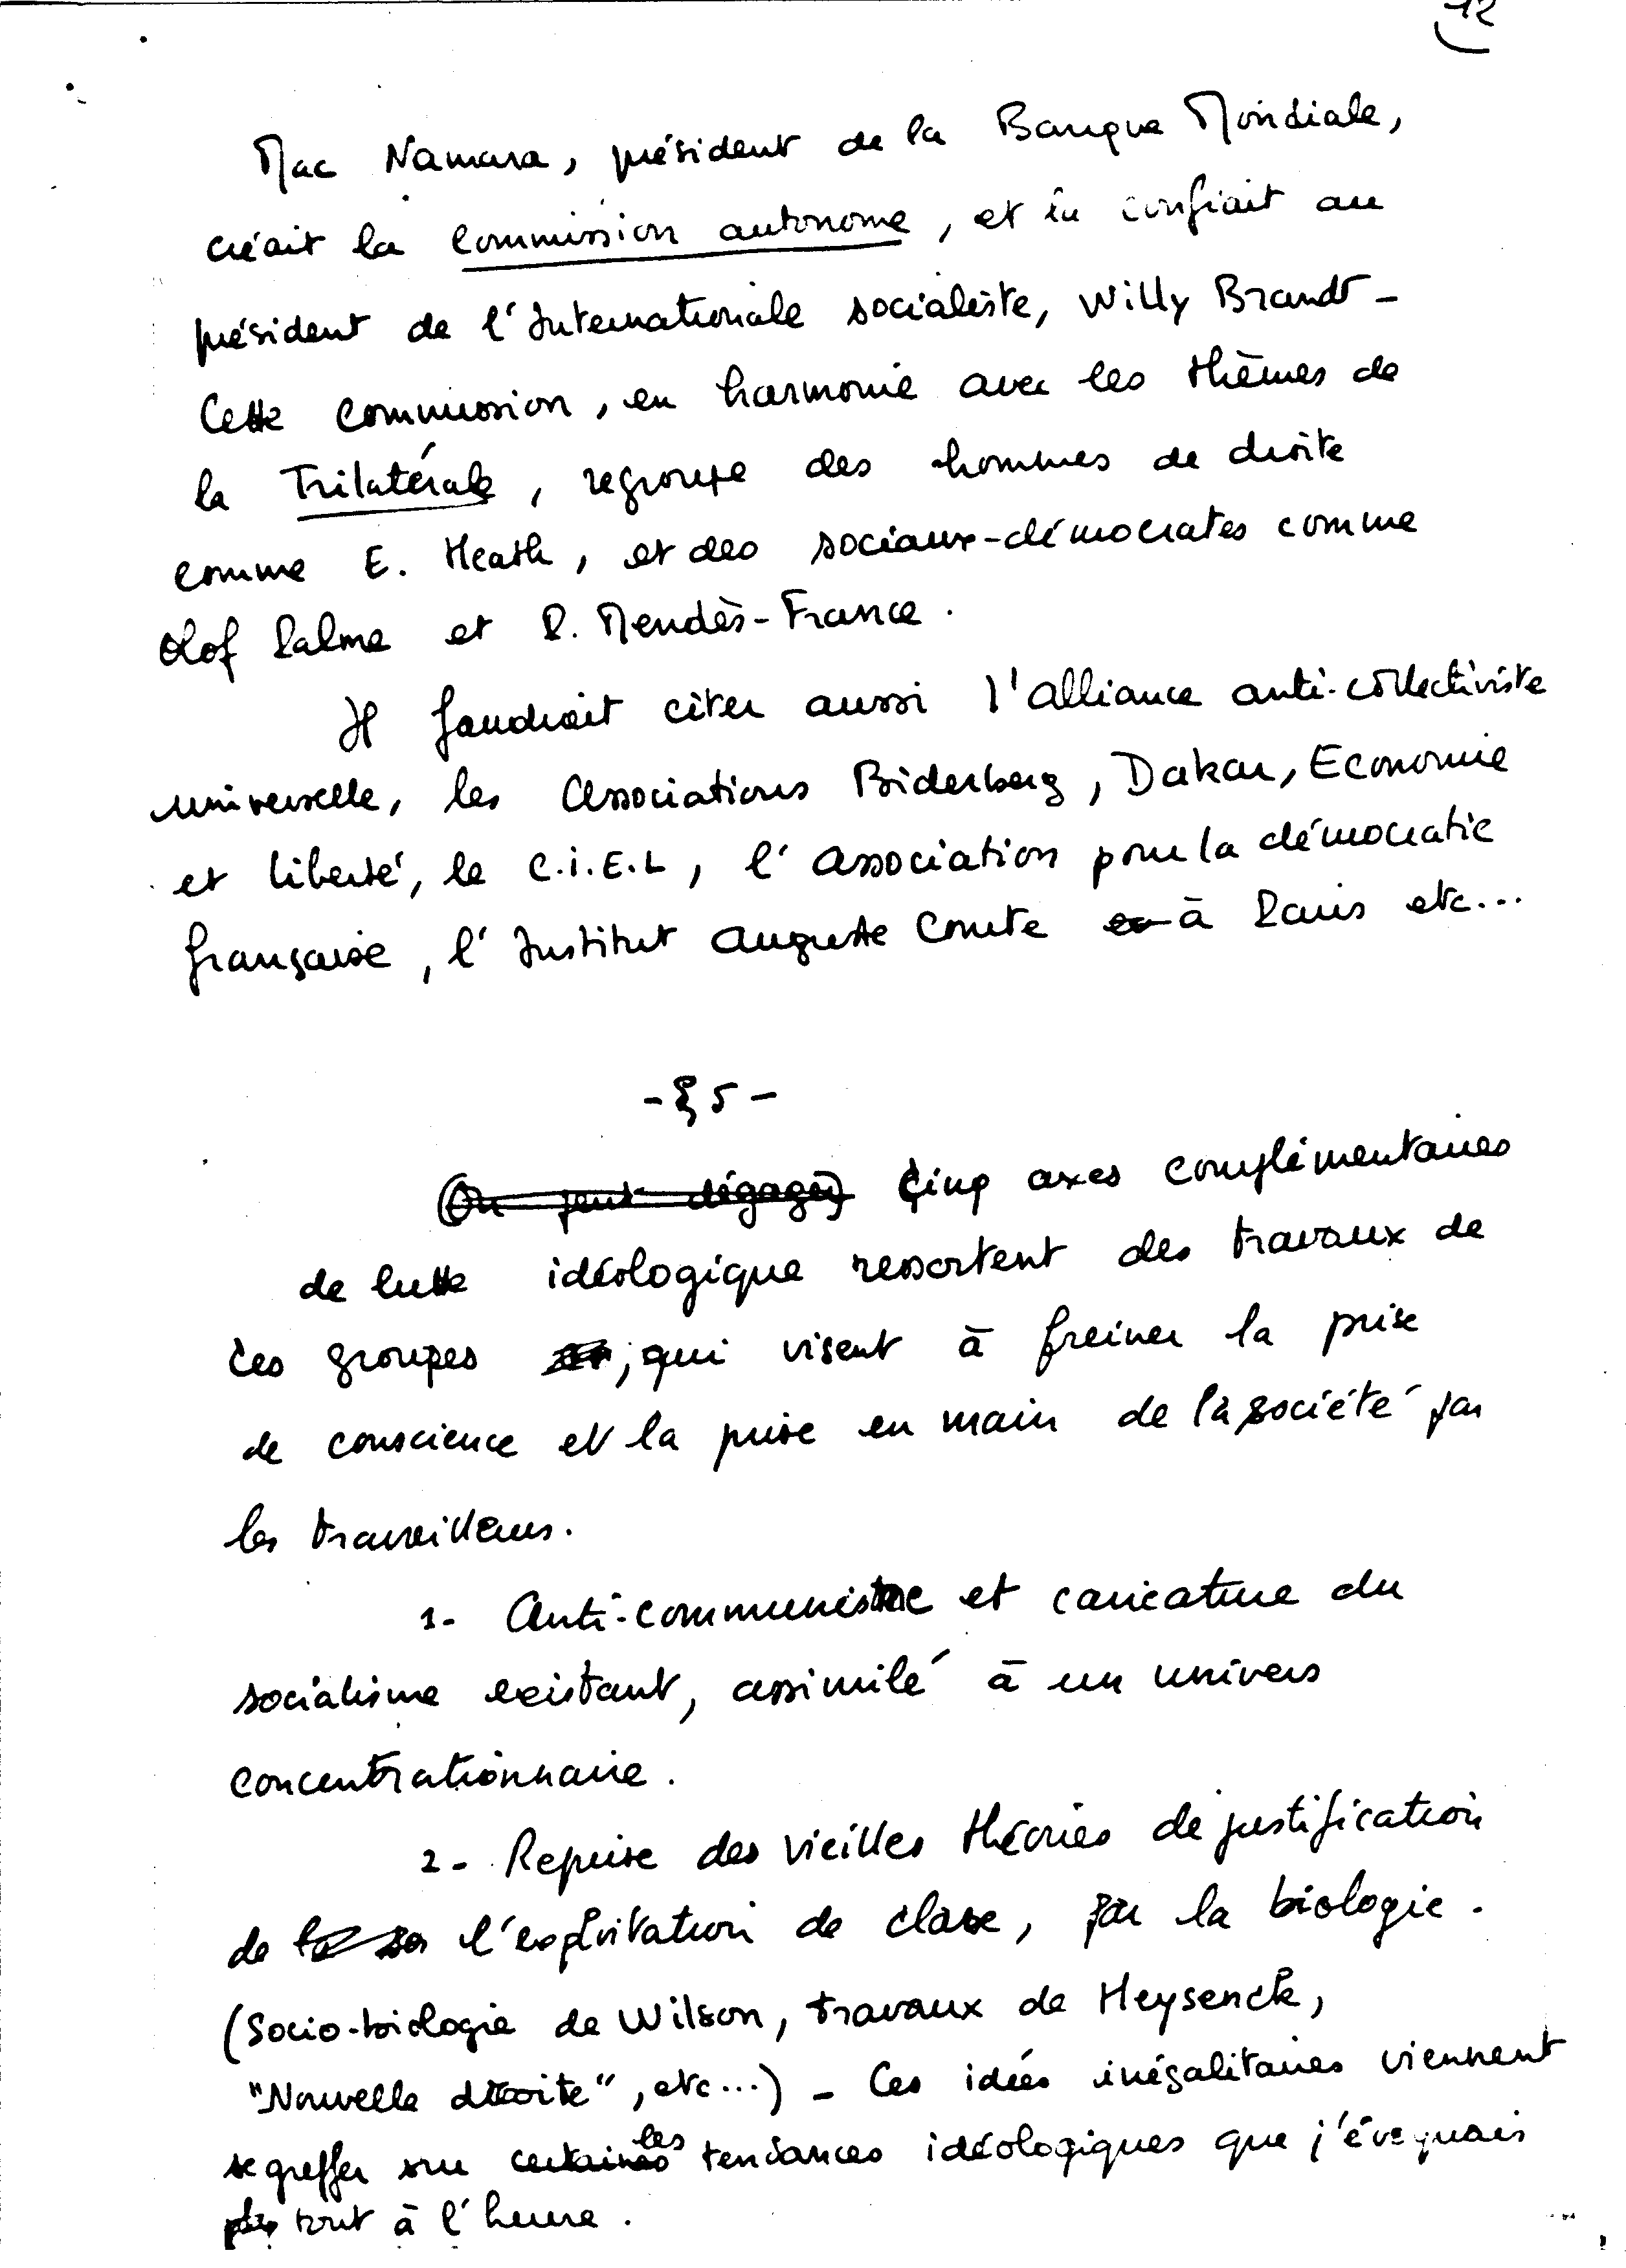 12
Mac Namara, président de la Banque Mondiale,
créait la Commission autonome, et la confiait au
président de l'Internationale socialiste, Willy Brandt -
Cette Commission, en harmonie avec les thèmes de
la Trilatérale, regroupe des hommes de droite
comme E. Heath, et des sociaux-démocrates comme
Olof Palme et P. Mendès-France.
Il faudrait citer aussi l'alliance anti-collectiviste
universelle, les Associations Biderberg, Dakar, Economie
et liberté, le C.I.E.L, l'association pour la démocratie
française, l'Institut Auguste Comte à Paris etc...
- § 5 -
(On peut dégager) Cinq axes complémentaires
de lutte idéologique ressortent des travaux de
ces groupes, qui visent à freiner la prise
de conscience et la prise en main de la société par
les travailleurs.
1- Anti-communisme et caricature du
socialisme existant, assimilé à un univers
concentrationnaire.
2- Reprise des vieilles théories de justification
de l'exploitation de classe, par la biologie.
(Socio-biologie de Wilson, travaux de Heysenck,
"Nouvelle droite", etc...) - Ces idées inégalitaires viennent
se greffer sur certaines les tendances idéologiques que j'évoquais
tout à l'heure.